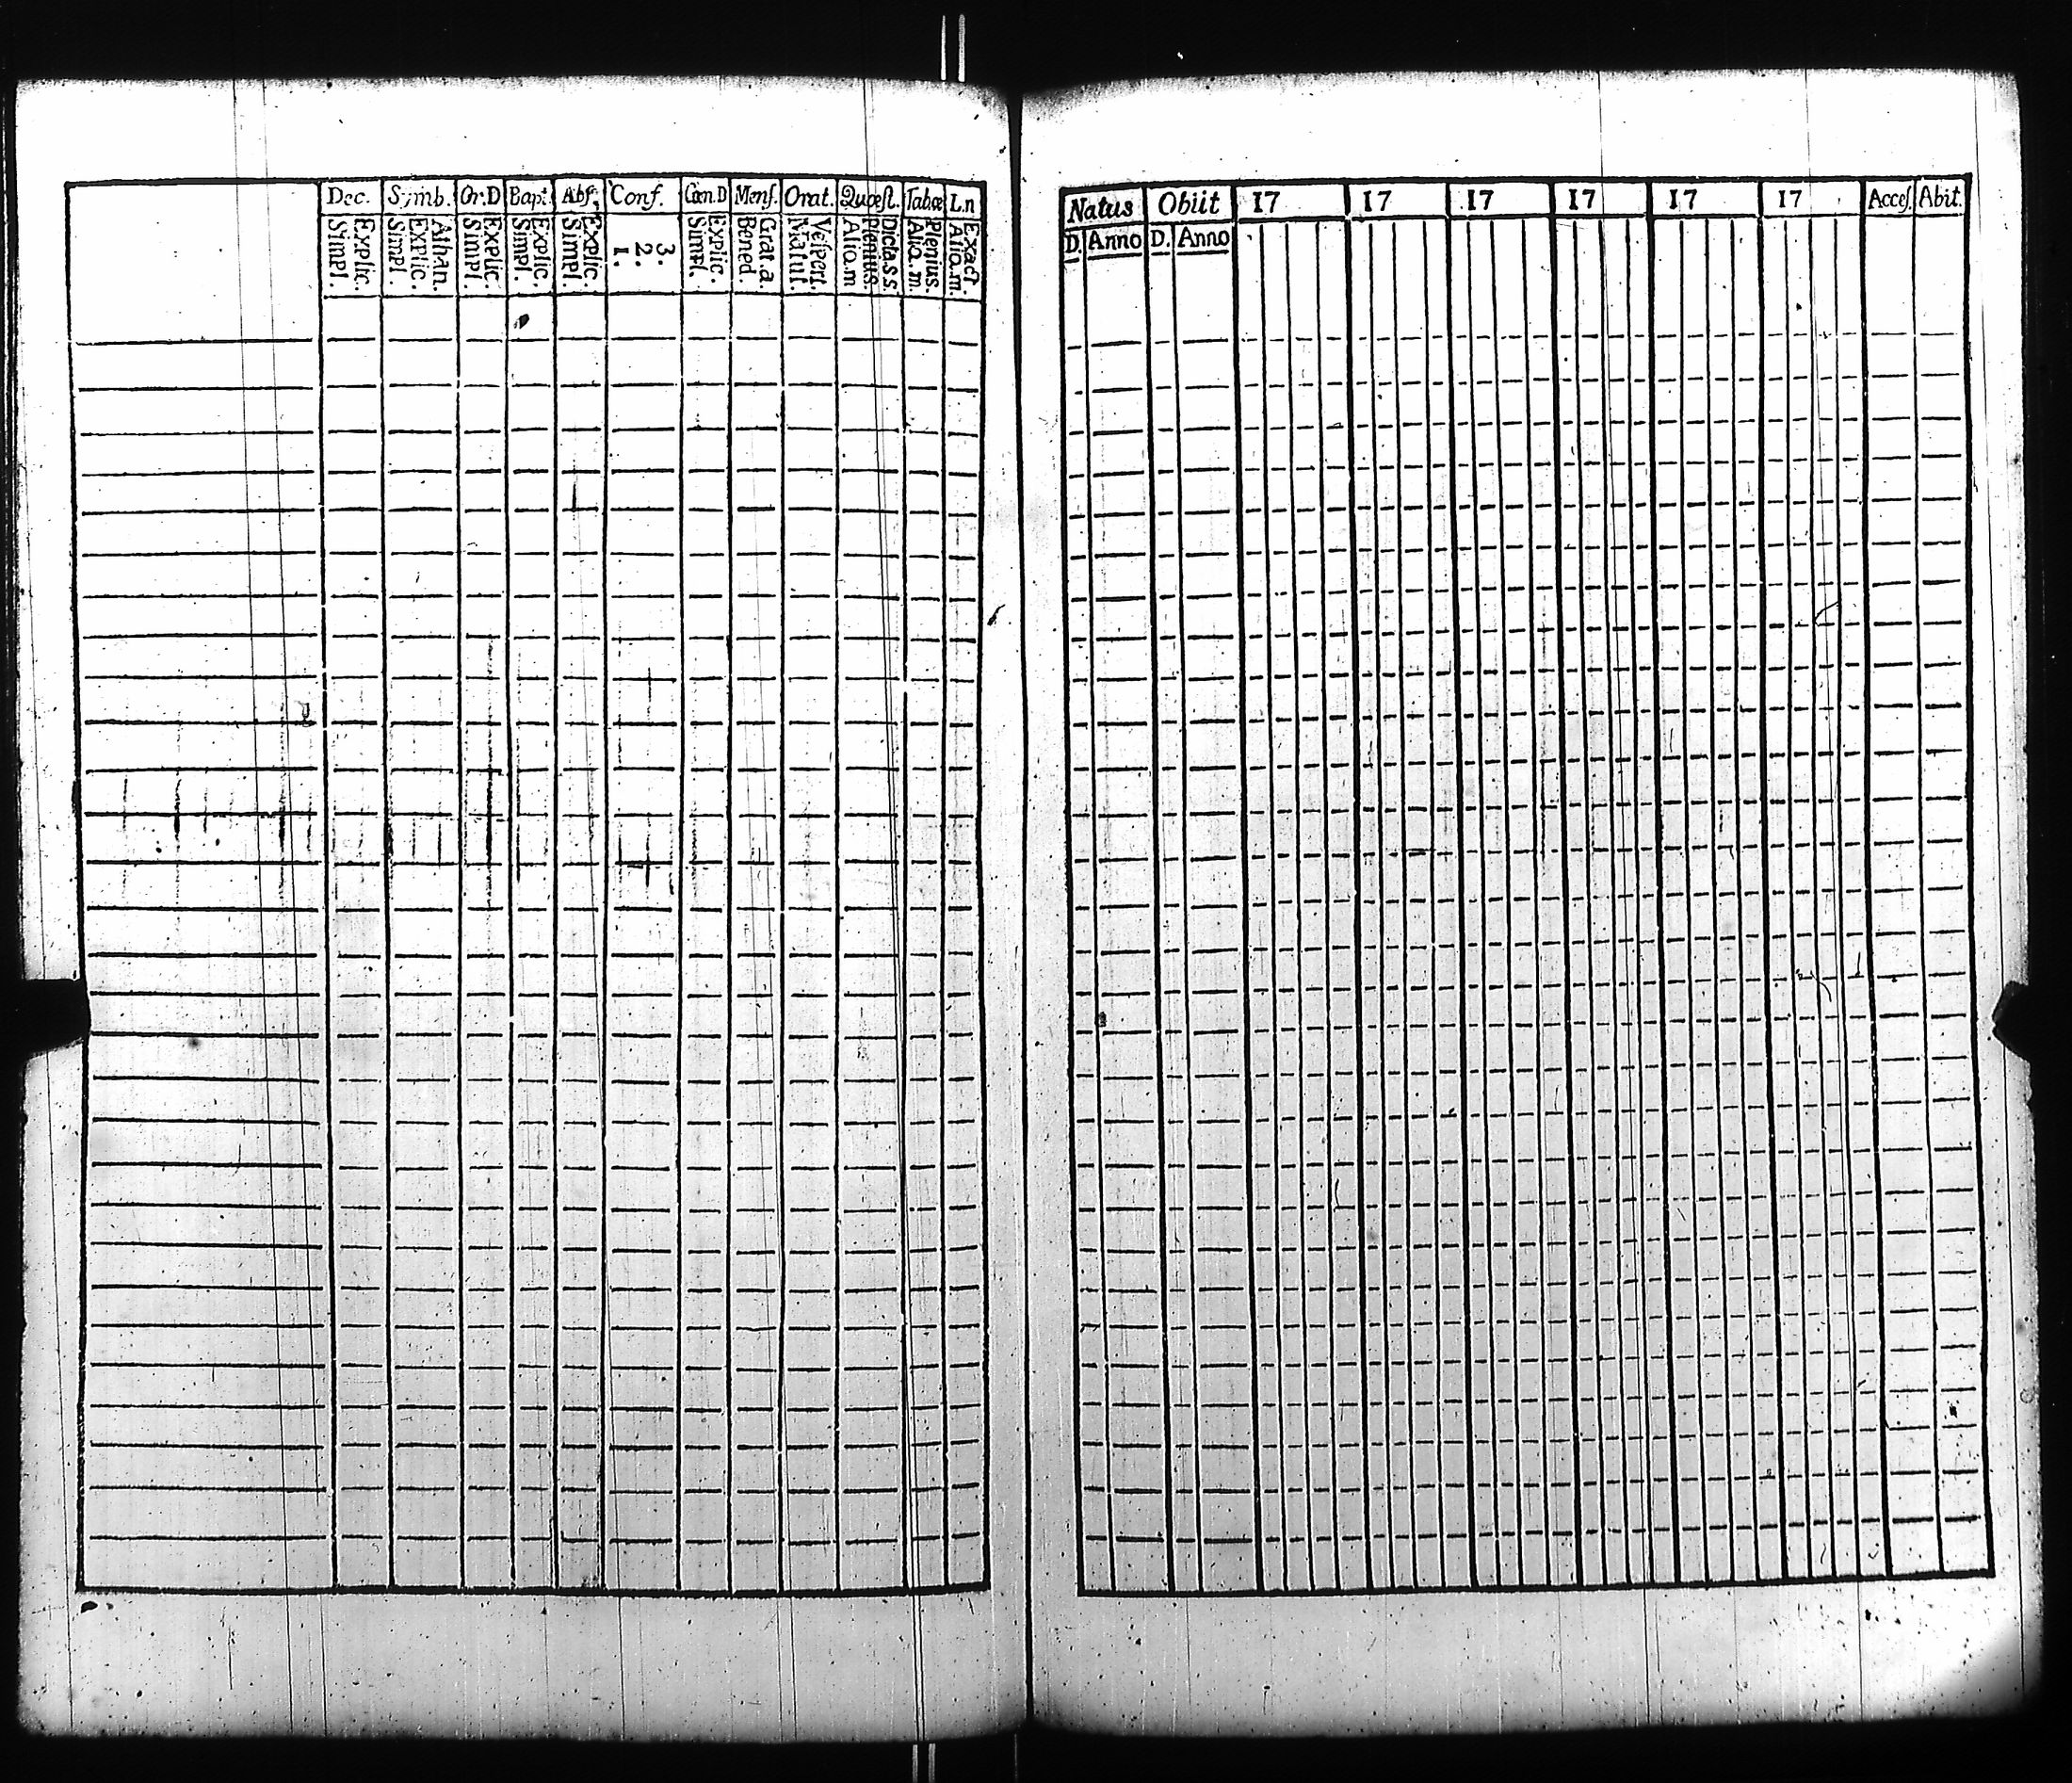 Dec. Symb. Or.D Bapt. Abs. Conf. Cœn.D Mens. Orat. Quœst. Tabœ L.n
Explic. Simpl. Athan. Explic. Simpl. Explic. Simpl. Explic. Simpl. Explic. Simpl. 3. 2. 1. Explic. Simpl. Grat.a. Bened. Vespert. Matut. Dicta.s.s. Plenius. Aliq.m Plenius. Aliq.m Exact. Aliq.m.
Natus Obiit 17 17 17 17 17 17 Acces. Abit.
D. Anno D. Anno